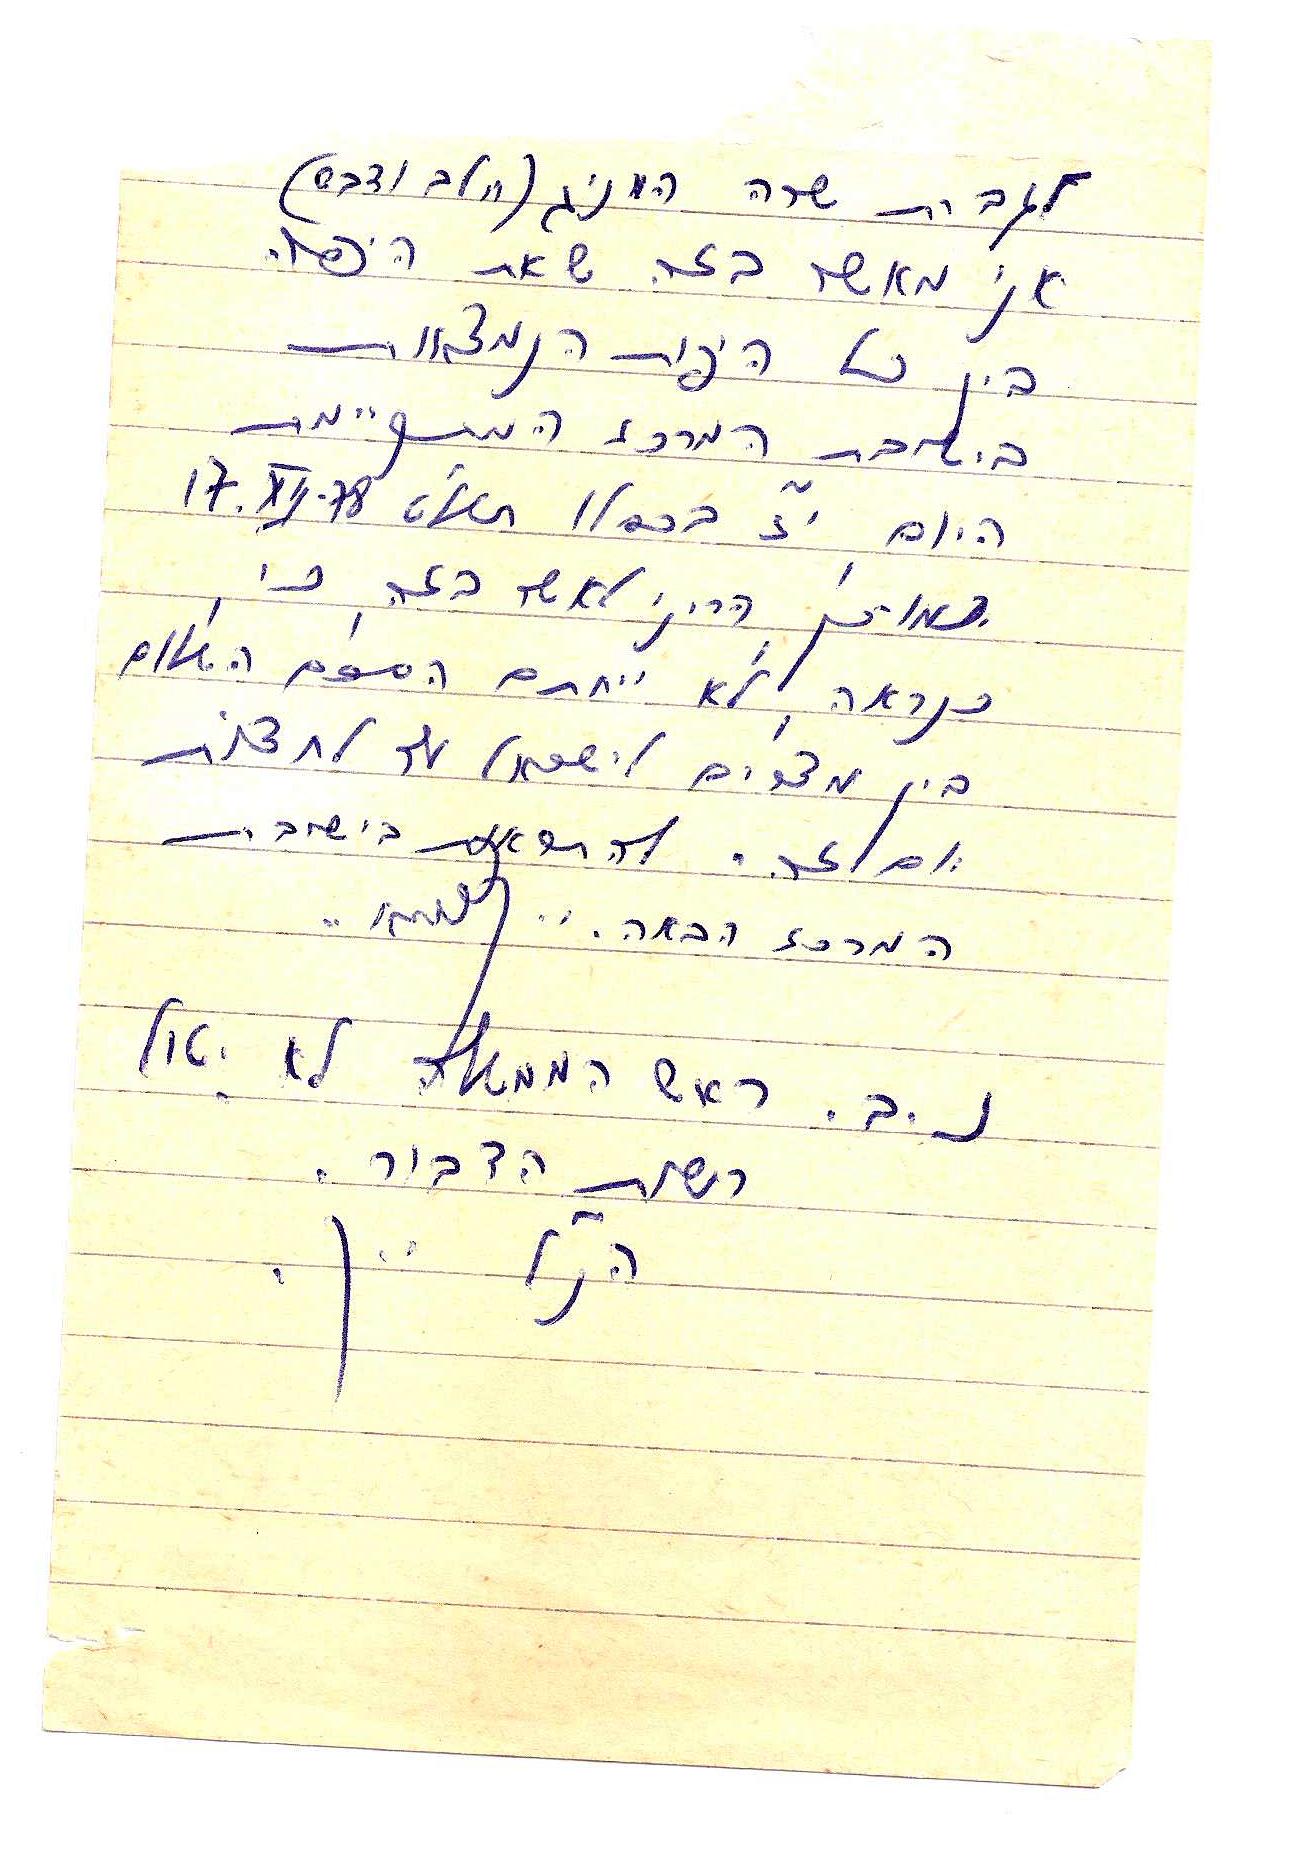 לגברת שרה הוניג (חלב ודבש)
אני מאשר בזה שאת היפה
בין כל היפות הנמצאות
בישיבת המרכז המתקיימת
היום, י"ז בכסלו תשל"ט 17.XII.78
כמו-כן, הריני לאשר בזה, כי,
כנראה, לא ייחתם הסכם השלום
בין מצרים לישראל עד לחצות
יום זה. להתראות בישיבת
המרכז הבאה.
נ.ב. ראש הממשלה לא יטול
רשות הדבור.
הנ"ל